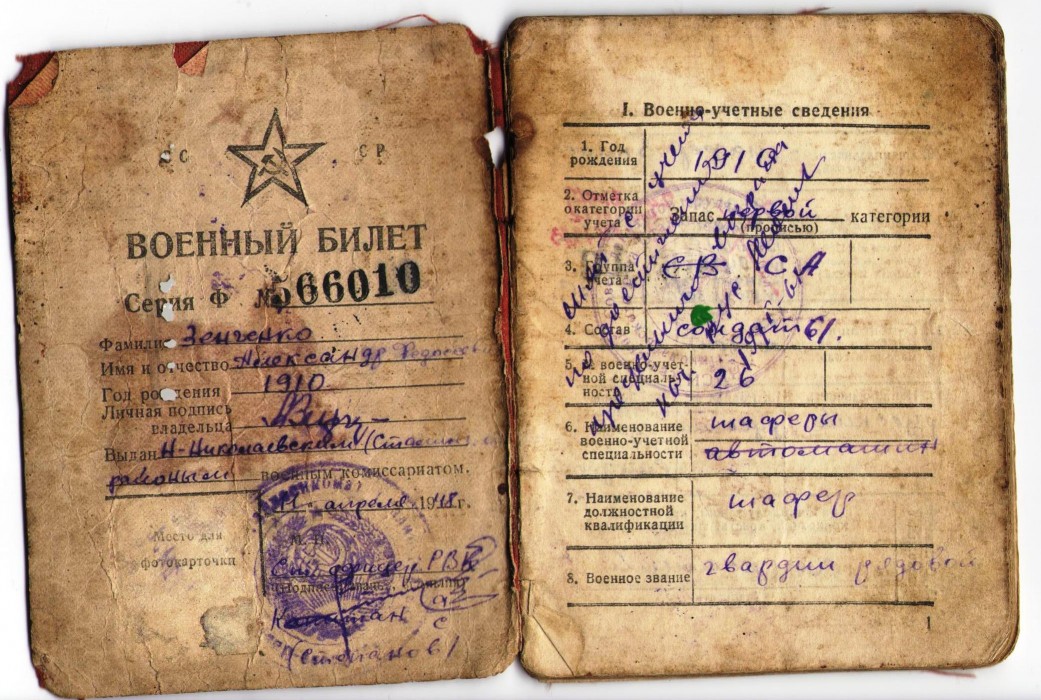 СС СР
ВОЕННЫЙ БИЛЕТ
Серия Ф № 566010
Фамилия Зенченко
Имя и отчество Александр
Год рождения 1910
Личная подпись
владельца
Выдан Н-Николаевским (Сталин
районым военным комиссариатом.
апреля 1948 г.
Место для
фотокарточки
М. П.
офицер РВК
Капитан
(Степанов)
I. Военно-учетные сведения
1. Год
рождения 1910
2. Отметка
о категории
учета Запас первой категории
(прописью)
3. Группа
учета СВ СА
4. Состав солдаты.
5. № военно-учет-
ной специаль-
ности 26
6. Наименование
военно-учетной
специальности шоферы
автомашин
7. Наименование
должностной
квалификации шофер
8. Военное звание гвардии рядовой
Снят с учета
по достижении
предельного возраста
1